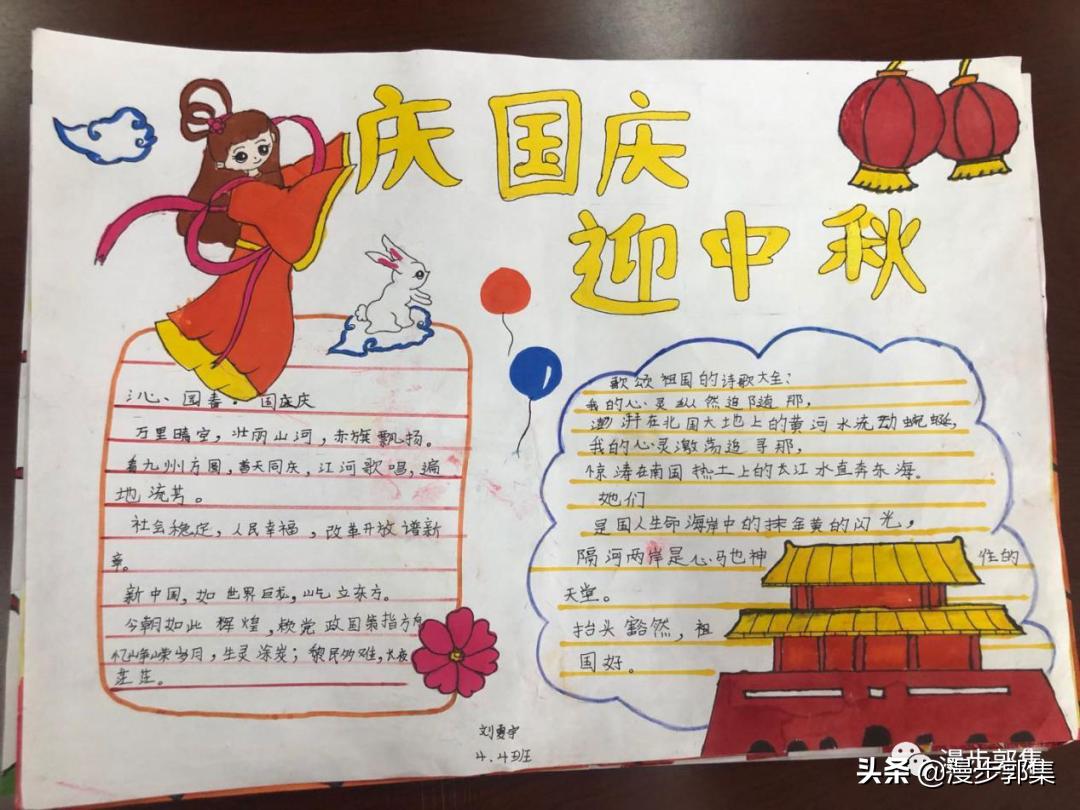 庆国庆
迎中秋
国庆
万里晴空，壮丽山河，赤旗飘扬。
看九州方圆，普天同庆，江河歌唱，遍
地流芳。
社会稳定，人民幸福，改革开放谱新
章。
新中国，如世界巨龙，屹立东方。
今朝如此辉煌，赖党政国策指方向
忆峥嵘岁月，生灵涂炭；黎民多难，长夜
茫茫。
歌颂祖国的诗歌大全：
我的心灵纵然追随那，
澎湃在北国大地上的黄河水流动蜿蜒，
我的心灵激荡追寻那，
惊涛在南国热土上的长江水直奔东海。
她们
是国人生命海岸中的抹金黄的闪光，
隔河两岸是心马也神 性的
天堂。
抬头豁然，祖
国好。
4.4班
漫步郭集
头条 @漫步郭集